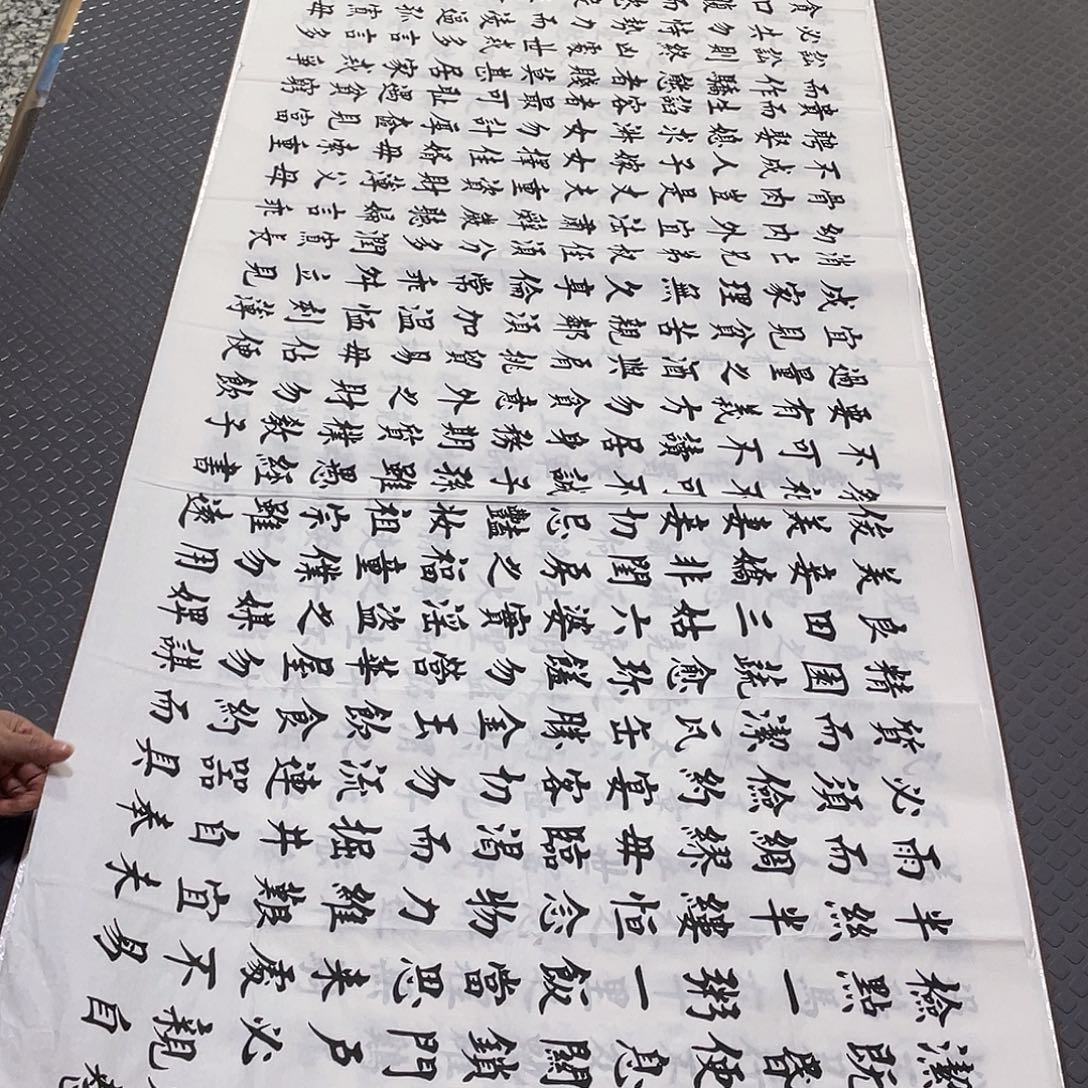 潔既昏便息關鎖門戶必親自
檢點一粥一飯當思来處不易
半絲半縷恒念物力維艱宜未
雨而綢繆毋臨渴而掘井自奉
必須儉約宴客切勿流連器具
質而潔瓦缶勝金玉飲食約而
精園蔬愈珍饈勿營華屋勿謀
良田三姑六婆實淫盜之媒婢
美妾嬌非閨房之福童僕勿用
俊美妻妾切忌豔妝祖宗雖遠
祭祀不可不誠子孫雖愚經書
不可不讀居身務期質樸教子
要有義方勿貪意外之財勿飲
過量之酒與肩挑貿易毋佔便
宜見貧苦親鄰須加溫恤刻薄
成家理無久享倫常乖舛立見
消亡兄弟叔侄須分多潤寡長
幼內外宜法肅辭嚴聽婦言乖
骨肉豈是丈夫重資財薄父母
不成人子嫁女擇佳婿毋索重
聘娶媳求淑女勿計厚奩見富
貴而生諂容者最可恥遇貧窮
而作驕態者賤莫甚居家戒爭
訟訟則終凶處世戒多言言多
必失勿恃勢力而凌逼孤寡毋
貪口腹